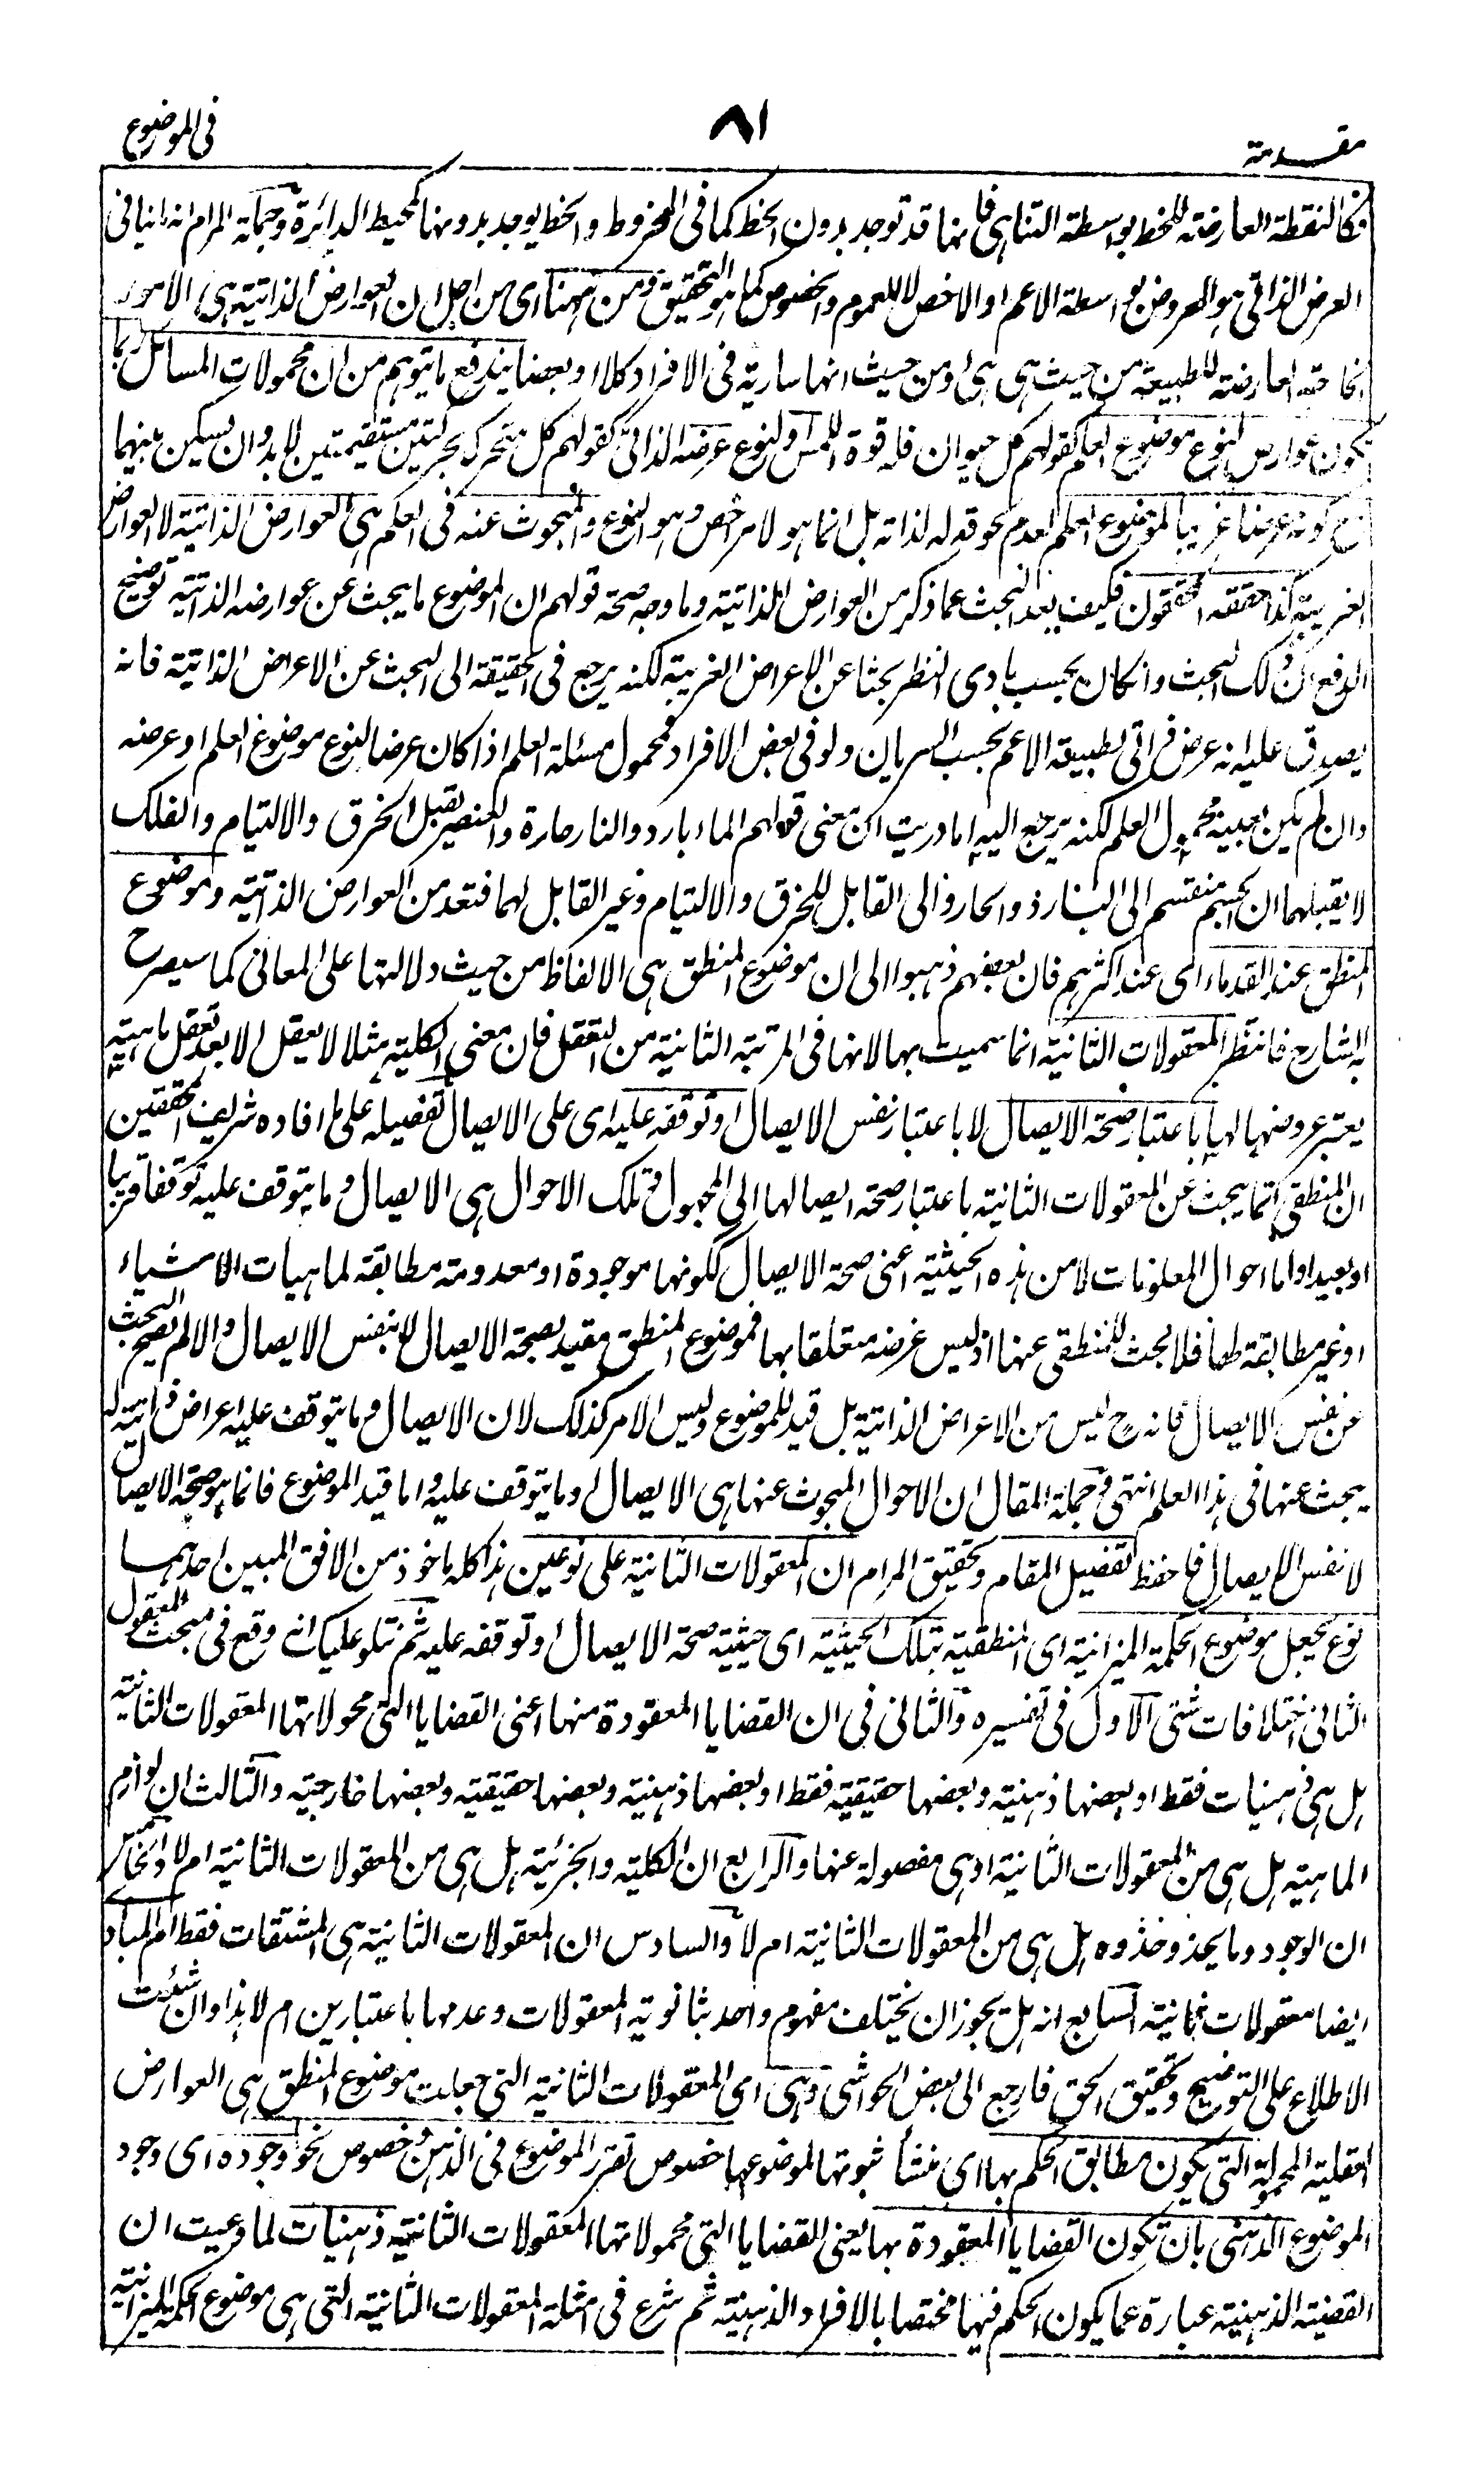 مقدمة
٨١
فى الموضوع
فكالنقطة العارضة للخط بواسطة التناهى فانها قد توجد بدون الخط كما فى المخروط والخط يوجد بدونها كمحيط الدائرة وجملة المرام انه لا ينافى
العرض الذاتى هو العروض بواسطة الاعم او الاخص لا العموم والخصوص كما هو التحقيق ومن ههنا اى من اجل ان العوارض الذاتية هى الامور
العارضة للطبيعة من حيث هى هى او من حيث انها سارية فى الافراد كلا او بعضا يندفع ما يتوهم من ان محمولات المسائل ربما
تكون عوارض لنوع موضوع العلم كقولهم كل حيوان فله قوة اللمس او لنوع عرضه الذاتى كقولهم كل متحرك بحركتين مستقيمتين لا بد وان يسكن بينهما
مع كونه عرضا غريبا لموضوع العلم لعدم لحوقه له لذاته بل انما هو لامر اخص وهو النوع والمبحوث عنه فى العلم هى العوارض الذاتية لا العوارض
الغريبة كذا حققه المحققون فكيف يعد البحث عما ذكر من العوارض الذاتية وما وجه صحة قولهم ان الموضوع ما يبحث عن عوارضه الذاتية توضيح
الدفع ان ذلك البحث وان كان بحسب بادى النظر بحثا عن الاعراض الغريبة لكنه يرجع فى الحقيقة الى البحث عن الاعراض الذاتية فانه
يصدق عليه انه عرض ذاتى لطبيعة الاعم بحسب السريان ولو فى بعض الافراد فمحمول مسئلة العلم اذا كان عرضا لنوع موضوع العلم او عرضه
وان لم يكن بعينه محمول العلم لكنه يرجع اليه اما دريت ان معنى قولهم الماء بارد والنار حارة والعنصر يقبل الخرق والالتيام والفلك
لا يقبلهما ان الجسم منقسم الى البارد والحار والى القابل للخرق والالتيام وغير القابل لهما فتعد من العوارض الذاتية وموضوع
المنطق عند القدماء اى عند اكثرهم فان بعضهم ذهبوا الى ان موضوع المنطق هى الالفاظ من حيث دلالتها على المعانى كما سيصرح
به الشارح فانتظر المعقولات الثانية انما سميت بها لانها فى المرتبة الثانية من التعقل فان معنى الكلية مثلا لا يعقل الا بعد تعقل ماهية
يعتبر عروضها لها باعتبار صحة الايصال لا باعتبار نفس الايصال او توقفه عليه اى على الايصال تفصيله على ما افاده شريف المحققين
ان المنطقى انما يبحث عن المعقولات الثانية باعتبار صحة ايصالها الى المجهول وتلك الاحوال هى الايصال وما يتوقف عليه توقفا قريبا
او بعيدا واما احوال المعلومات لا من هذه الحيثية اعنى صحة الايصال ككونها موجودة او معدومة مطابقة لماهيات الاشياء
او غير مطابقة لها فلا بحث للمنطقى عنها اذ ليس غرضه متعلقا بها فموضوع المنطق مقيد بصحة الايصال لا بنفس الايصال والا لم يصح البحث
عن نفس الايصال فانه ح ليس من الاعراض الذاتية بل قيد للموضوع وليس الامر كذلك لان الايصال وما يتوقف عليه اعراض ذاتية له
يبحث عنها فى هذا العلم انتهى فى جملة المقال ان الاحوال المبحوث عنها هى الايصال وما يتوقف عليه واما قيد الموضوع فانما هو صحة الايصال
لا نفس الايصال فاحفظ تفصيل المقام وتحقيق المرام ان المعقولات الثانية على نوعين هذا كله ماخوذ من الافق المبين احدهما
نوع يجعل موضوع الحكمة الميزانية اى المنطقية بتلك الحيثية اى حيثية صحة الايصال او توقفه عليه ثم نتلو عليك انه وقع فى مبحث المعقول
الثانى اختلافات شتى الاول فى تفسيره والثانى فى ان القضايا المعقودة منها اعنى القضايا التى محمولاتها المعقولات الثانية
هل هى ذهنيات فقط او بعضها ذهنية وبعضها حقيقية فقط او بعضها ذهنية وبعضها حقيقية وبعضها خارجية والثالث ان لوازم
الماهية هل هى من المعقولات الثانية او هى مفصولة عنها والرابع ان الكلية والجزئية هل هى من المعقولات الثانية ام لا والخامس
ان الوجود وما يحذو حذوه هل هى من المعقولات الثانية ام لا والسادس ان المعقولات الثانية هى المشتقات فقط ام المباد
ايضا معقولات ثانية السابع انه هل يجوز ان يختلف مفهوم واحد بثانوية المعقولات وعدمها باعتبارين ام لا هذا وان شئت
الاطلاع على التوضيح وتحقيق الحق فارجع الى بعض الحواشى وهى اى المعقولات الثانية التى جعلت موضوع المنطق هى العوارض
العقلية المحمولة التى يكون مطابق الحكم بها اى منشأ ثبوتها لموضوعها خصوص تقرر الموضوع فى الذهن وخصوص نحو وجوده اى وجود
الموضوع الذهنى بان تكون القضايا المعقودة بها يعنى القضايا التى محمولاتها المعقولات الثانية ذهنيات لما وعيت ان
القضية الذهنية عبارة عما يكون الحكم فيها مختصا بالافراد الذهنية ثم شرع فى امثلة المعقولات الثانية التى هى موضوع الحكمة الميزانية